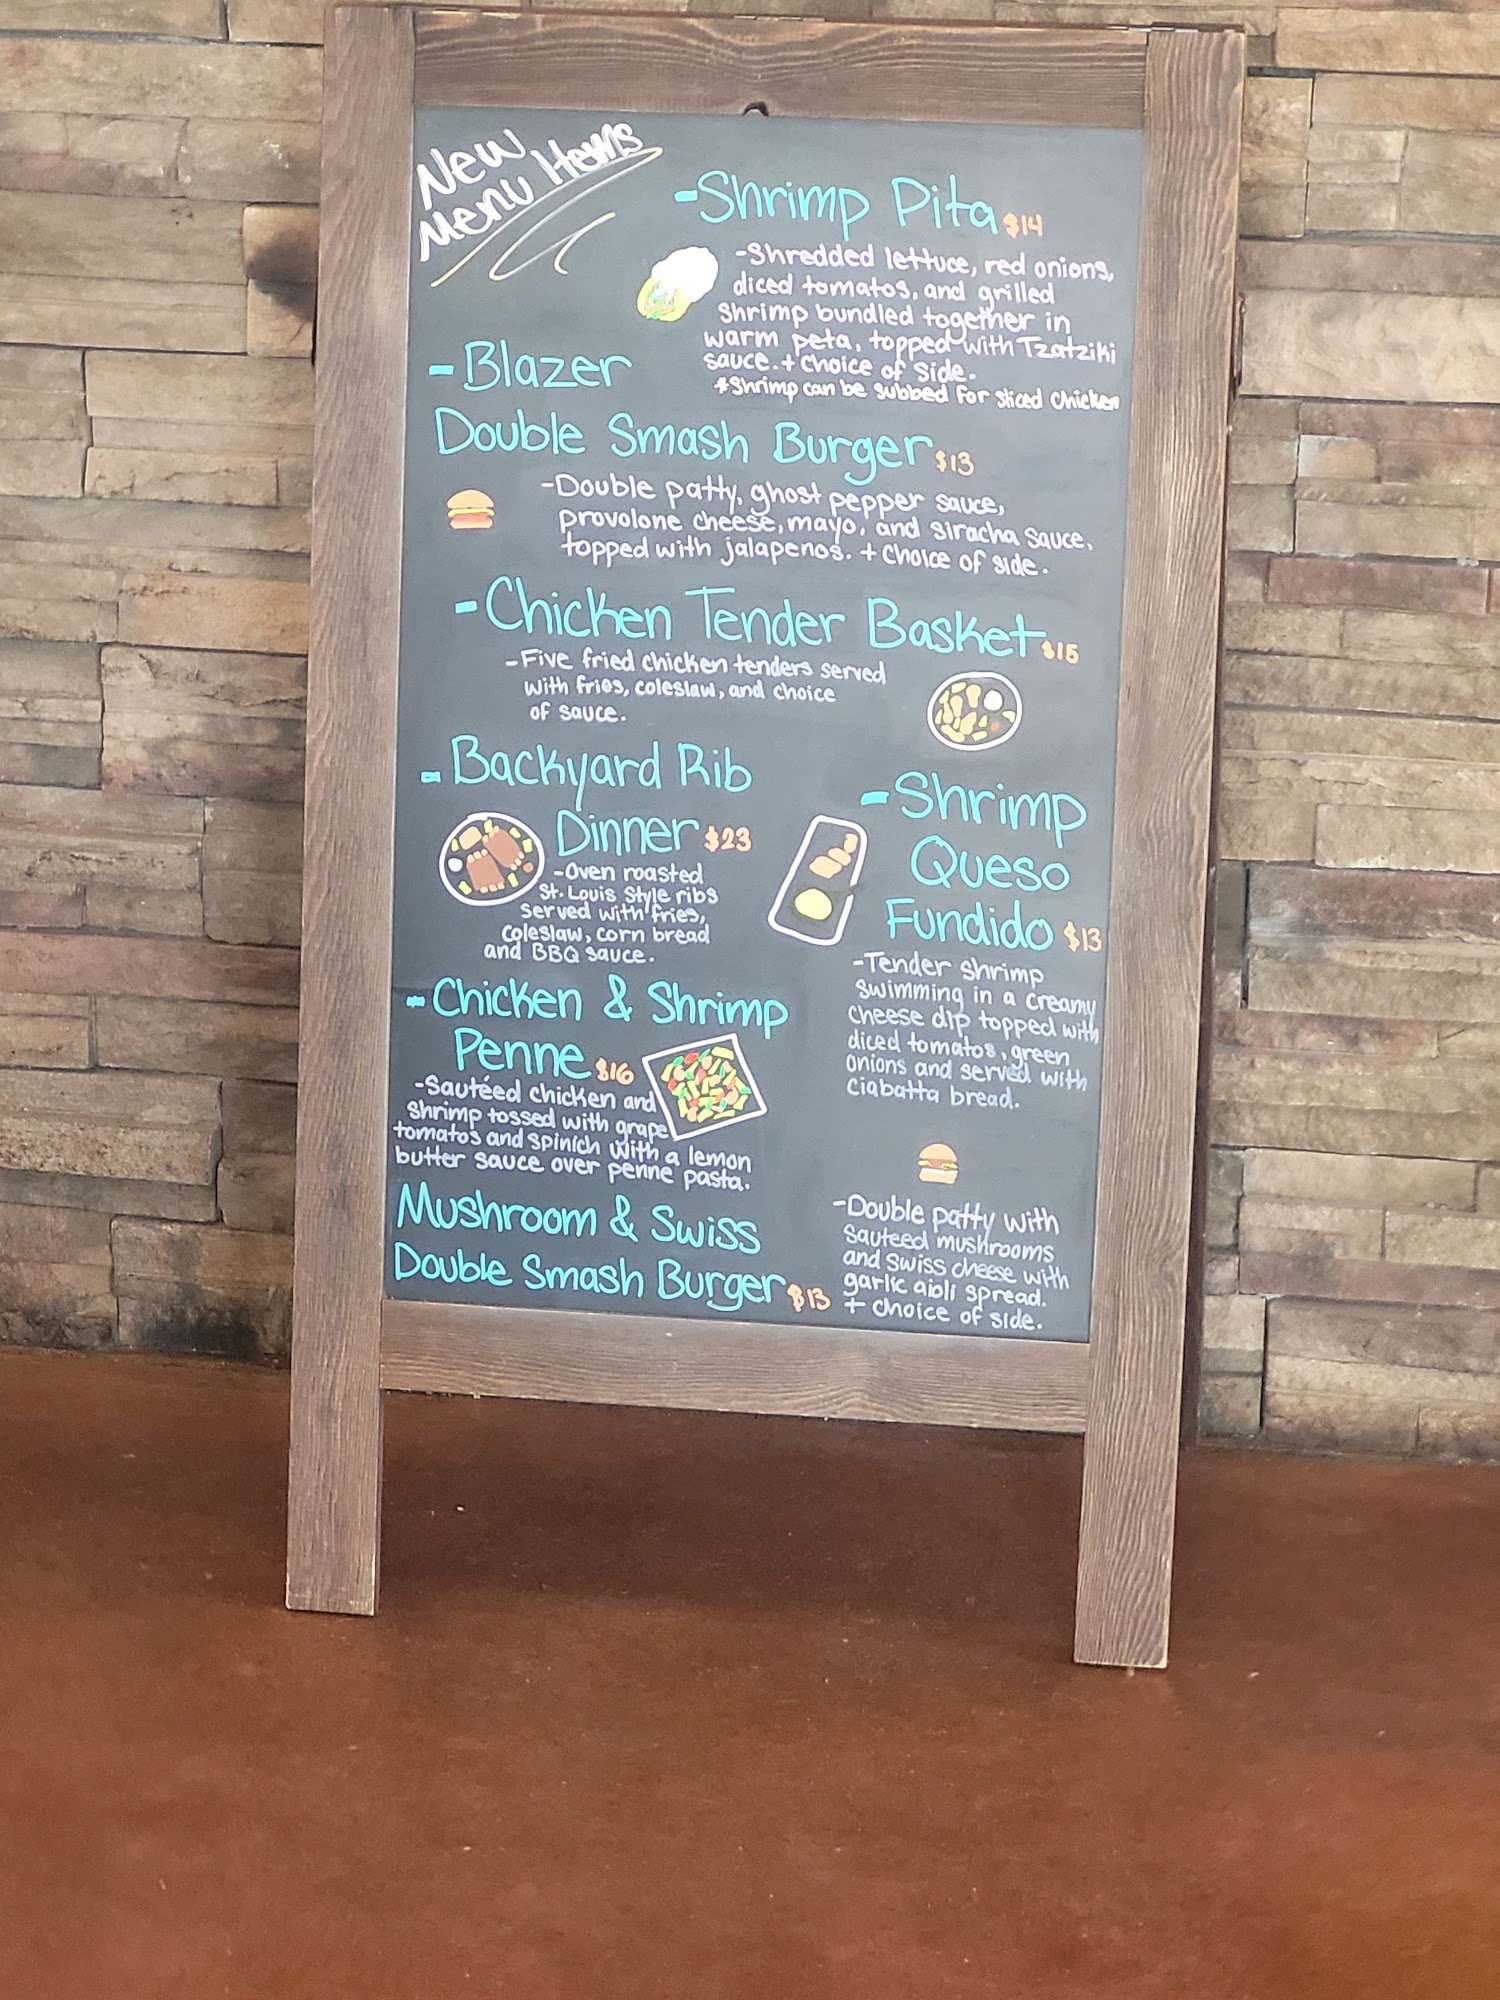 New
Menu Items
-Shrimp Pita $14
-Shredded lettuce, red onions,
diced tomatos, and grilled
Shrimp bundled together in
warm peta, topped with Tzatziki
sauce. + Choice of Side.
*Shrimp can be subbed for sliced chicken
-Blazer
Double Smash Burger $13
-Double patty, ghost pepper sauce,
provolone cheese, mayo, and siracha sauce,
topped with jalapenos. + Choice of side.
-Chicken Tender Basket $15
-Five fried chicken tenders served
with fries, coleslaw, and choice
of sauce.
-Backyard Rib
Dinner $23
-Oven roasted
St. Louis Style ribs
served with fries,
coleslaw, corn bread
and BBQ sauce.
-Shrimp
Queso
Fundido $13
-Tender shrimp
swimming in a creamy
cheese dip topped with
diced tomatos, green
onions and served with
ciabatta bread.
-Chicken & Shrimp
Penne $16
-Sautéed chicken and
shrimp tossed with grape
tomatos and spinich with a lemon
butter sauce over penne pasta.
Mushroom & Swiss
Double Smash Burger $13
-Double patty with
sauteed mushrooms
and swiss cheese with
garlic aioli spread.
+ choice of side.